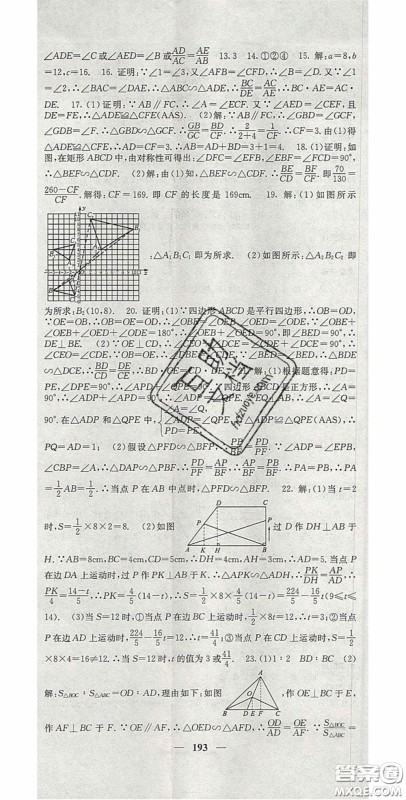 ∠ADE=∠C或∠AED=∠B或AD/AC=AE/AB 13.3 14.①②④ 15.解:a=8,b
=12,c=16. 16.证明:∵∠1=∠3,又∠AFB=∠CFD,∴∠B=∠D.又∵∠1
=∠2,∴∠BAC=∠DAE,∴△ABC∽△ADE,∴BC/DE=AC/AE,∴BC·AE=AC·
DE. 17.(1)证明:∵AB∥FC,∴∠A=∠ECF.又∵∠AED=∠CEF,且
DE=FE,∴△ADE≌△CFE(AAS). (2)解:∵AB∥FC,∴∠GBD=∠GCF,
∠GDB=∠F,∴△GBD∽△GCF.∴GB/GC=BD/CF.∴2/(2+4)=1/CF.∴CF=3.由(1)得
△ADE≌△CFE.∴AD=CF=3.∴AB=AD+DB=3+1=4. 18.(1)证明:如
图,在矩形ABCD中,由对称性可得出:∠DFC=∠EFB,∠EBF=∠FCD=90°,
∴△BEF∽△CDF. (2)解:由(1)知,△BEF∽△CDF.∴BE/CD=BF/CF.即70/130=
(260-CF)/CF.解得:CF=169.即CF的长度是169cm. 19.解:(1)如图所示
:△A₁B₁C₁即为所求. (2)如图所示:△A₂B₂C₂即
为所求;B₂(10,8). 20.证明:(1)∵四边形ABCD是平行四边形,∴OB=OD.
∵OE=OB,∴OE=OD.∴∠OBE=∠OEB,∠OED=∠ODE.∵∠OBE+
∠OEB+∠OED+∠ODE=180°,∴∠BEO+∠DEO=∠BED=90°.即DE
⊥BE. (2)∵OE⊥CD,∴∠CEO+∠DCE=∠CDE+∠DCE=90°.∴
∠CEO=∠CDE.∵OB=OE,∴∠DBE=∠CDE.∵∠BED=∠BED,∴△BDE
∽△DCE.∴BD/CD=DE/CE.∴ 解:(1)根据题意得:PD=
PE,∠DPE=90°,∴∠APD+∠QPE=90°.∵四边形ABCD是正方形,∴∠A=
90°,∴∠ADP+∠APD=90°,∴∠ADP=∠QPE.∵EQ⊥AB,∴∠A=∠Q=
90°.在△ADP和△QPE中,∠A=∠Q,∠ADP=∠QPE,PD=PE,∴△ADP≌△QPE(AAS),∴
PQ=AD=1; (2)假设△PFD∽△BFP.∴PD/BP=PF/BF.∵∠ADP=∠EPB,
∠CBP=∠A,∴△DAP∽△PBF,∴PD/PF=AP/BF.∴AP/BF=PB/BF.∴PA=PB,∴PA
=1/2AB=1/2.∴当点P在AB中点时,△PFD∽△BFP. 22.解:(1)当t=2
时,S=1/2×8×2=8. (2)如图 过D作DH⊥AB于
H.∵AB=8cm,BC=4cm,CD=5cm,∴DH=4cm,AH=3cm,∴AD=5.当点P
在边DA上运动时,过P作PK⊥AB于K.∴△APK∽△ADH,∴PK/DH=AP/AD,∴
PK/4=(14-t)/5,∴PK=4/5(14-t),∴S=1/2×8×4/5(14-t)=224/5-16/5t(9≤t≤
14). (3)当S=12时,①当点P在边BC上运动时,1/2×8×t=12,t=3;②当点P
在边AD上运动时,224/5-16/5t=12,∴t=41/4;③当点P在CD上运动时,S=1/2
×8×4=16≠12.∴当S=12时,t的值为3或41/4. 23.(1)1:2 BD:BC (2)
解:S△BOC:S△ABC=OD:AD,理由如下:如图 ,作OE⊥BC于E,
作AF⊥BC于F.∵OE∥AF,∴△OED∽△AFD.∴OD/AD=OE/AF.∵S△BOC/S△ABC=
193
答案圈
MXQE.COM